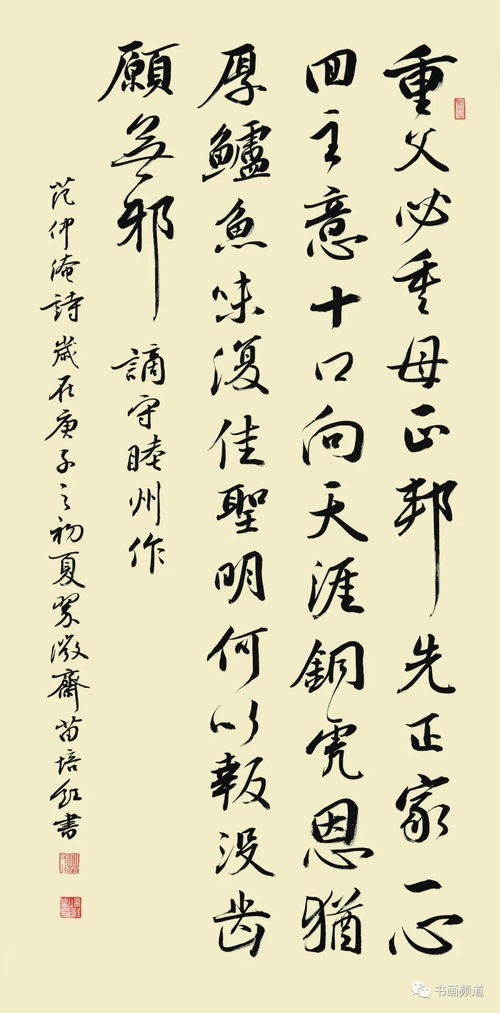 重父必重母正邦先正家一心
回主意十口向天涯銅虎恩猶
厚鱸魚味復佳聖明何以報没齿
願無邪 謫守睦州作
范仲淹詩歲在庚子之初夏翠微齋苗培红書
书画频道